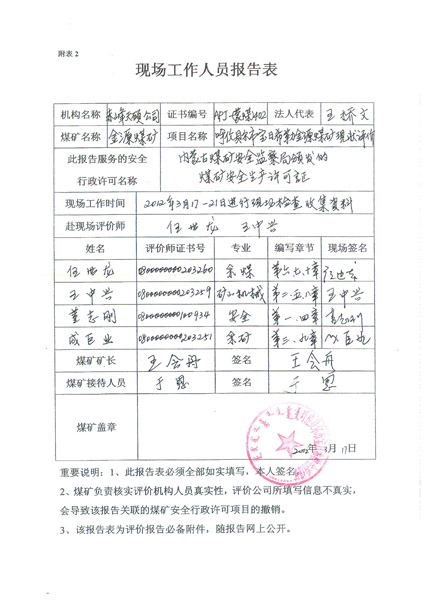 附表 2
现场工作人员报告表
机构名称 赤峰天硕公司 证书编号 APJ-蒙煤-402 法人代表 王桥文
煤矿名称 金源煤矿 项目名称 呼伦贝尔市宝日希勒金源煤矿现状评价
此报告服务的安全 内蒙古煤矿安全监察局颁发的
行政许可名称 煤矿安全生产许可证
现场工作时间 2012年3月17-21日进行现场检查收集资料
赴现场评价师 任世龙 王中兴
姓名 评价师证书号 专业 编写章节 现场签名
任世龙 0800000000203260 采煤 第六.七.十章
王中兴 0800000000203259 矿山机械 第二.五.八章 王中兴
董志刚 0800000000100934 安全 第一.四章 董志刚
成巨业 0800000000203251 采矿 第三.九章 成巨业
煤矿矿长 王会舟 签名 王会舟
煤矿接待人员 于恩 签名 于恩
煤矿盖章
2012年 3月 17日
重要说明：1、此报告表必须全部如实填写，本人签名。
2、煤矿负责核实评价机构人员真实性，评价公司所填写信息不真实，
会导致该报告关联的煤矿安全行政许可项目的撤销。
3、该报告表为评价报告必备附件，随报告网上公开。